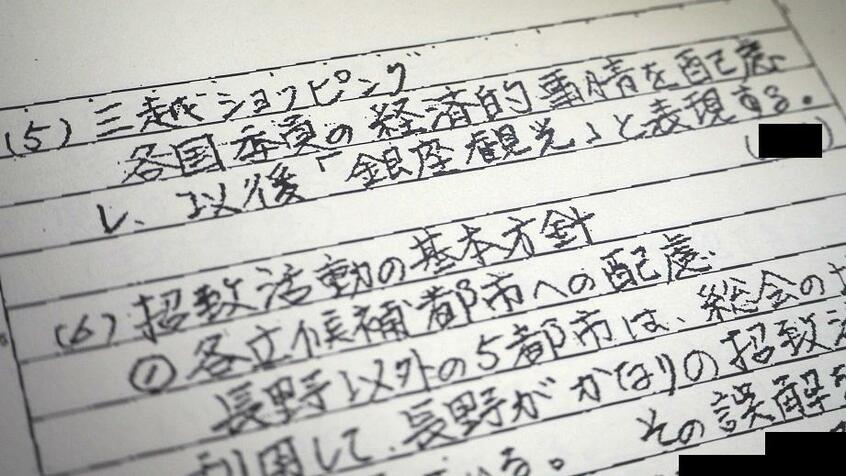 (5) 三越ショッピング
各国委員の経済的事情を配慮
し、以後「銀座観光」と表現する。
(6) 招致活動の基本方針
① 各立候補都市への配慮
長野以外の5都市は、総会の
利用して、長野がかなりの招致
いる。その誤解を